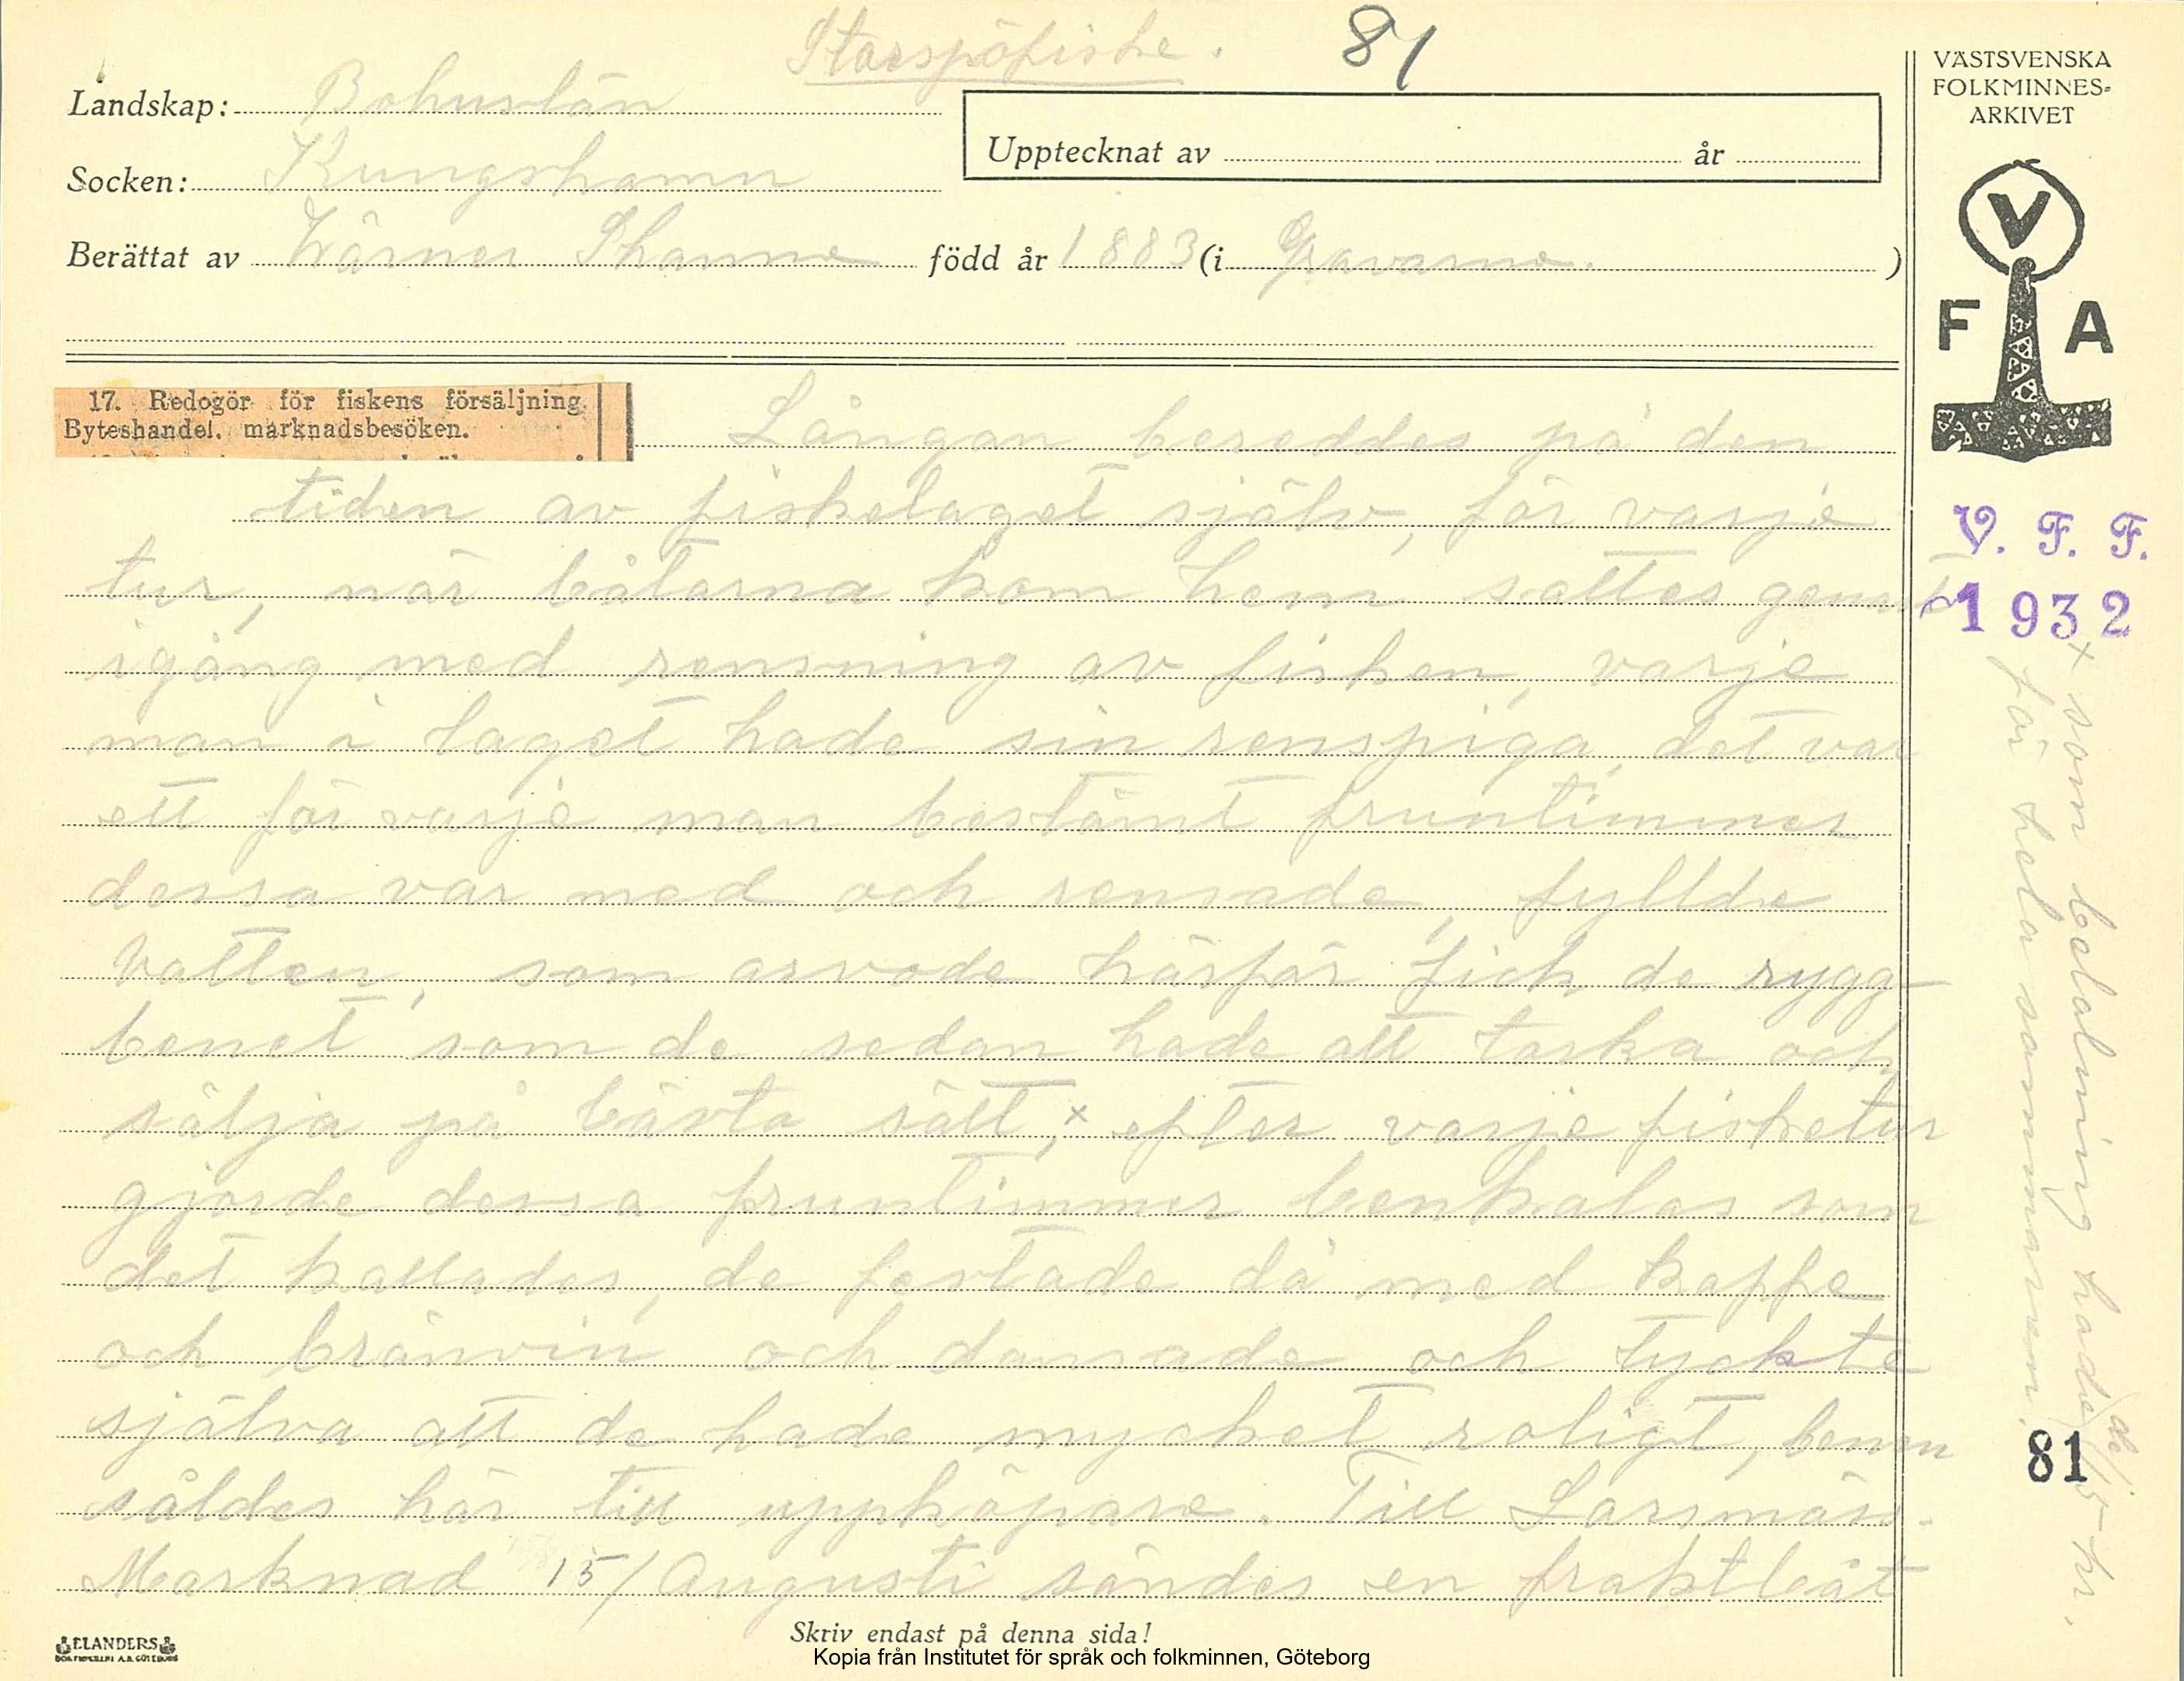 Storspöfiske. 81
Landskap: Bohuslän
Socken: Kungshamn
Upptecknat av år
Berättat av Wärner Thanne född år 1883 (i Gravarne. )
VÄSTSVENSKA
FOLKMINNES-
ARKIVET
V
F A
V. F. F.
1932
17. Redogör för fiskens försäljning.
Byteshandel. marknadsbesöken.
Långan bereddes på den
tiden av fiskelaget själv, för varje
tur, när båtarna kom hem sattes genast
igång med rensning av fisken, varje
man i laget hade sin renspiga, det var
ett för varje man bestämt fruntimmer
dessa var med och rensade, fyllde
vatten, som arvode härför fick de rygg-
benet som de sedan hade att torka och
sälja på bästa sätt,x efter varje fisketur
gjorde dessa fruntimmer benkalas som
det kallades, de festade då med kaffe
och bränvin och dansade och tyckte
själva att de hade mycket roligt, benen
såldes här till uppköpare. Till Larsmäss-
Marknad 15/ Augusti sändes en fraktbåt
x som betalning hade de 15 kr.
för hela sommaren.
81
Skriv endast på denna sida!
ELANDERS
BOKTRYCKERI A.B. GÖTEBORG
Kopia från Institutet för språk och folkminnen, Göteborg